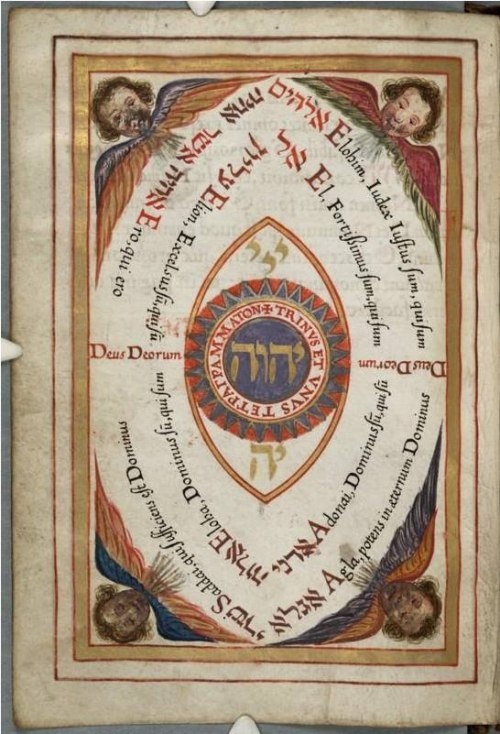 אהיה אשר אהיה Ero, qui ero
עליון Elion, Excelsus sū, qui sū
אלהים Elohim, Iudex Iustus sum, qui sum
אל El Fortissimus sum, qui sum
ייי
Deus Deorum
✠ TRINVS ET VNVS TETPAΓPAMMATON
יהוה
Deus Deorum
יה
אלוה Eloha, Dominus sū, qui sum
שדי Saddai, qui sufficiens est Dominus
אדני Adonai, Dominus sū, qui sū
אגלא Agla, potens in æternum Dominus